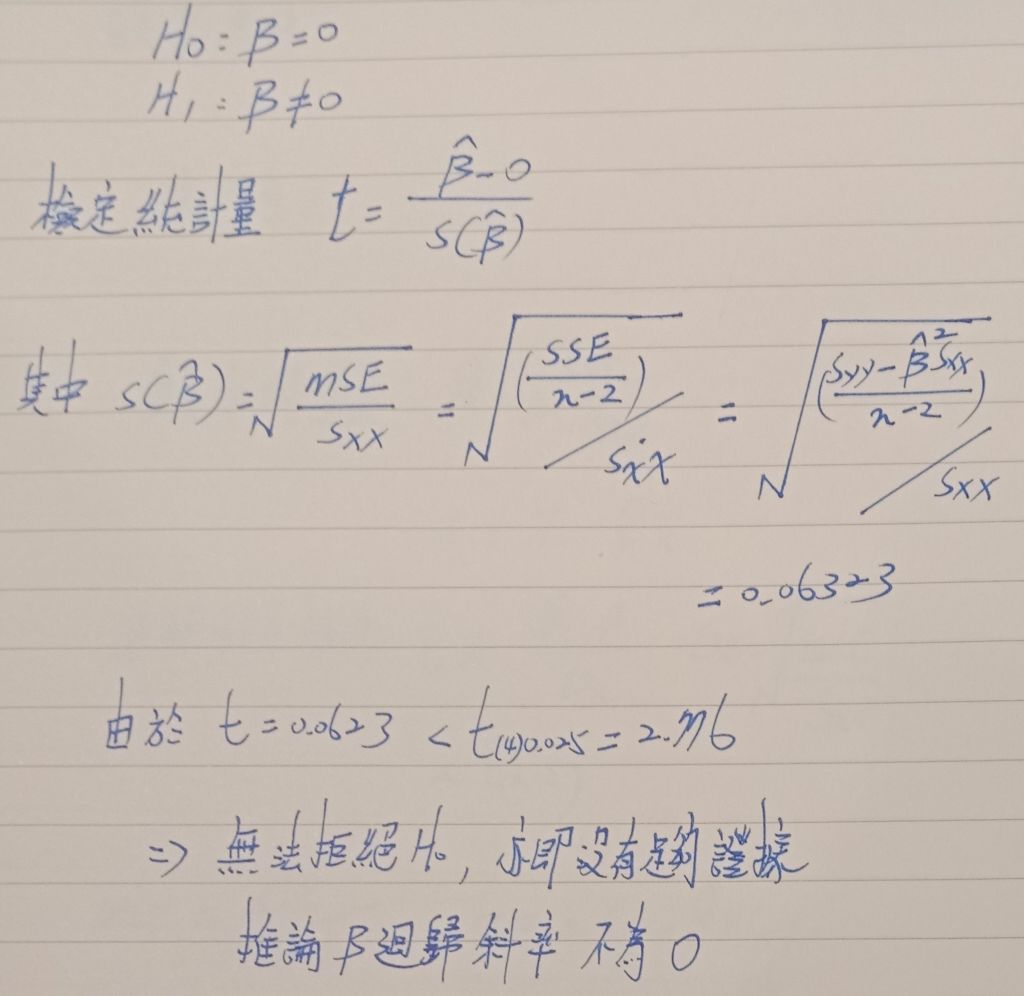 H₀ : β = 0
H₁ : β ≠ 0
檢定統計量 t = (β̂ - 0) / S(β̂)
其中 S(β̂) = √(MSE / Sxx) = √((SSE / n-2) / Sxx) = √((Syy - β̂²Sxx / n-2) / Sxx)
= 0.06323
由於 t = 0.0623 < t(4)0.025 = 2.776
=> 無法拒絕 H₀, 亦即沒有足夠證據
推論 β 迴歸斜率 不為 0